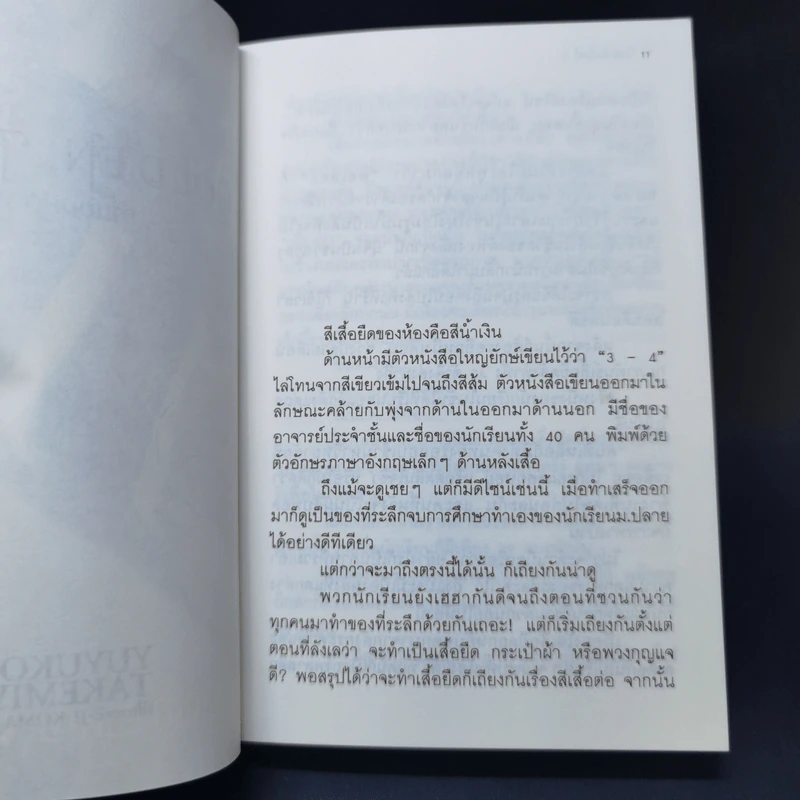 11
สีเสื้อยืดของห้องคือสีน้ำเงิน
ด้านหน้ามีตัวหนังสือใหญ่ยักษ์เขียนไว้ว่า “3 – 4”
ไล่โทนจากสีเขียวเข้มไปจนถึงสีส้ม ตัวหนังสือเขียนออกมาใน
ลักษณะคล้ายกับพุ่งจากด้านในออกมาด้านนอก มีชื่อของ
อาจารย์ประจำชั้นและชื่อของนักเรียนทั้ง 40 คน พิมพ์ด้วย
ตัวอักษรภาษาอังกฤษเล็กๆ ด้านหลังเสื้อ
ถึงแม้จะดูเชยๆ แต่ก็มีดีไซน์เช่นนี้ เมื่อทำเสร็จออก
มาก็ดูเป็นของที่ระลึกจบการศึกษาทำเองของนักเรียนม.ปลาย
ได้อย่างดีทีเดียว
แต่กว่าจะมาถึงตรงนี้ได้นั้น ก็เถียงกันน่าดู
พวกนักเรียนยังเฮฮากันดีจนถึงตอนที่ชวนกันว่า
ทุกคนมาทำของที่ระลึกด้วยกันเถอะ! แต่ก็เริ่มเถียงกันตั้งแต่
ตอนที่ลังเลว่า จะทำเป็นเสื้อยืด กระเป๋าผ้า หรือพวงกุญแจ
ดี? พอสรุปได้ว่าจะทำเสื้อยืดก็เถียงกันเรื่องสีเสื้อต่อ จากนั้น